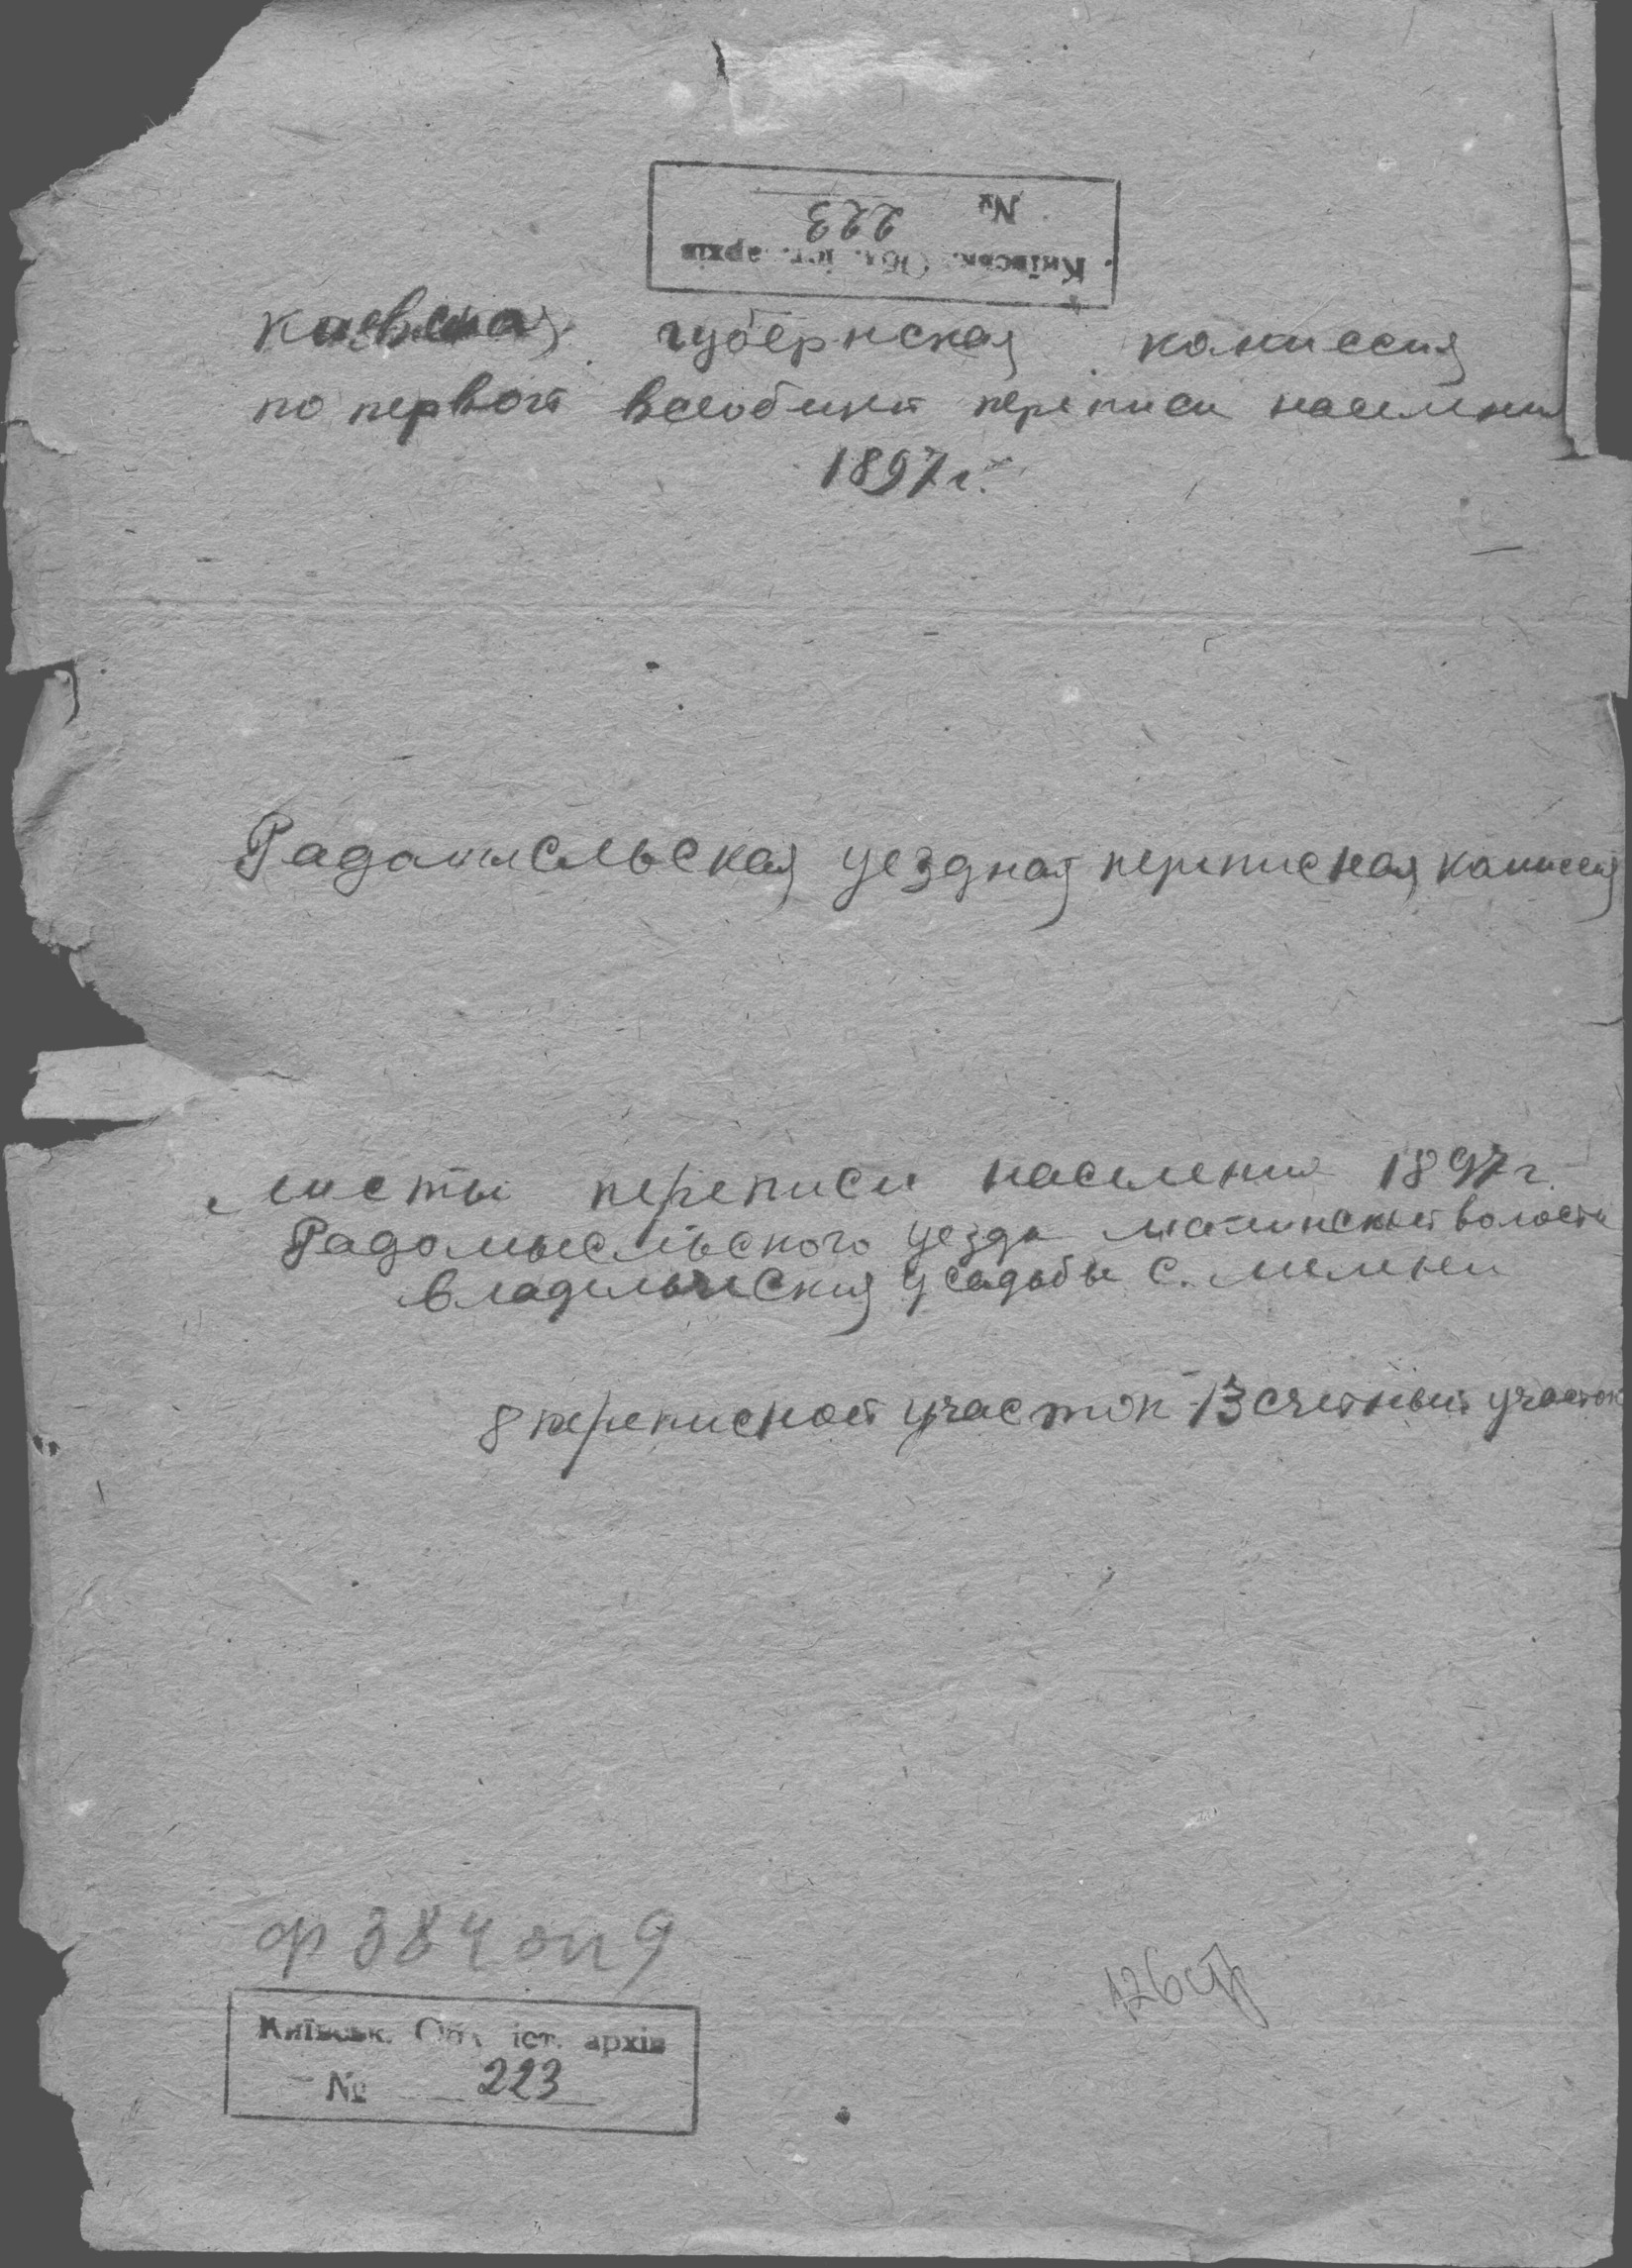 Київськ. Обл. іст. архів
№ 223
Киевская губернская комиссия
по первой всеобщей переписи населения
1897 г.
Радомысльская уездная переписная комиссия
Листы переписи населения 1897 г.
Радомысльского уезда Малинской волости
владельческия усадьбы с. Мелени
8 переписной участок 13 счетный участок
ф 384 оп 9
126
Київськ. Обл. іст. архів
№ 223